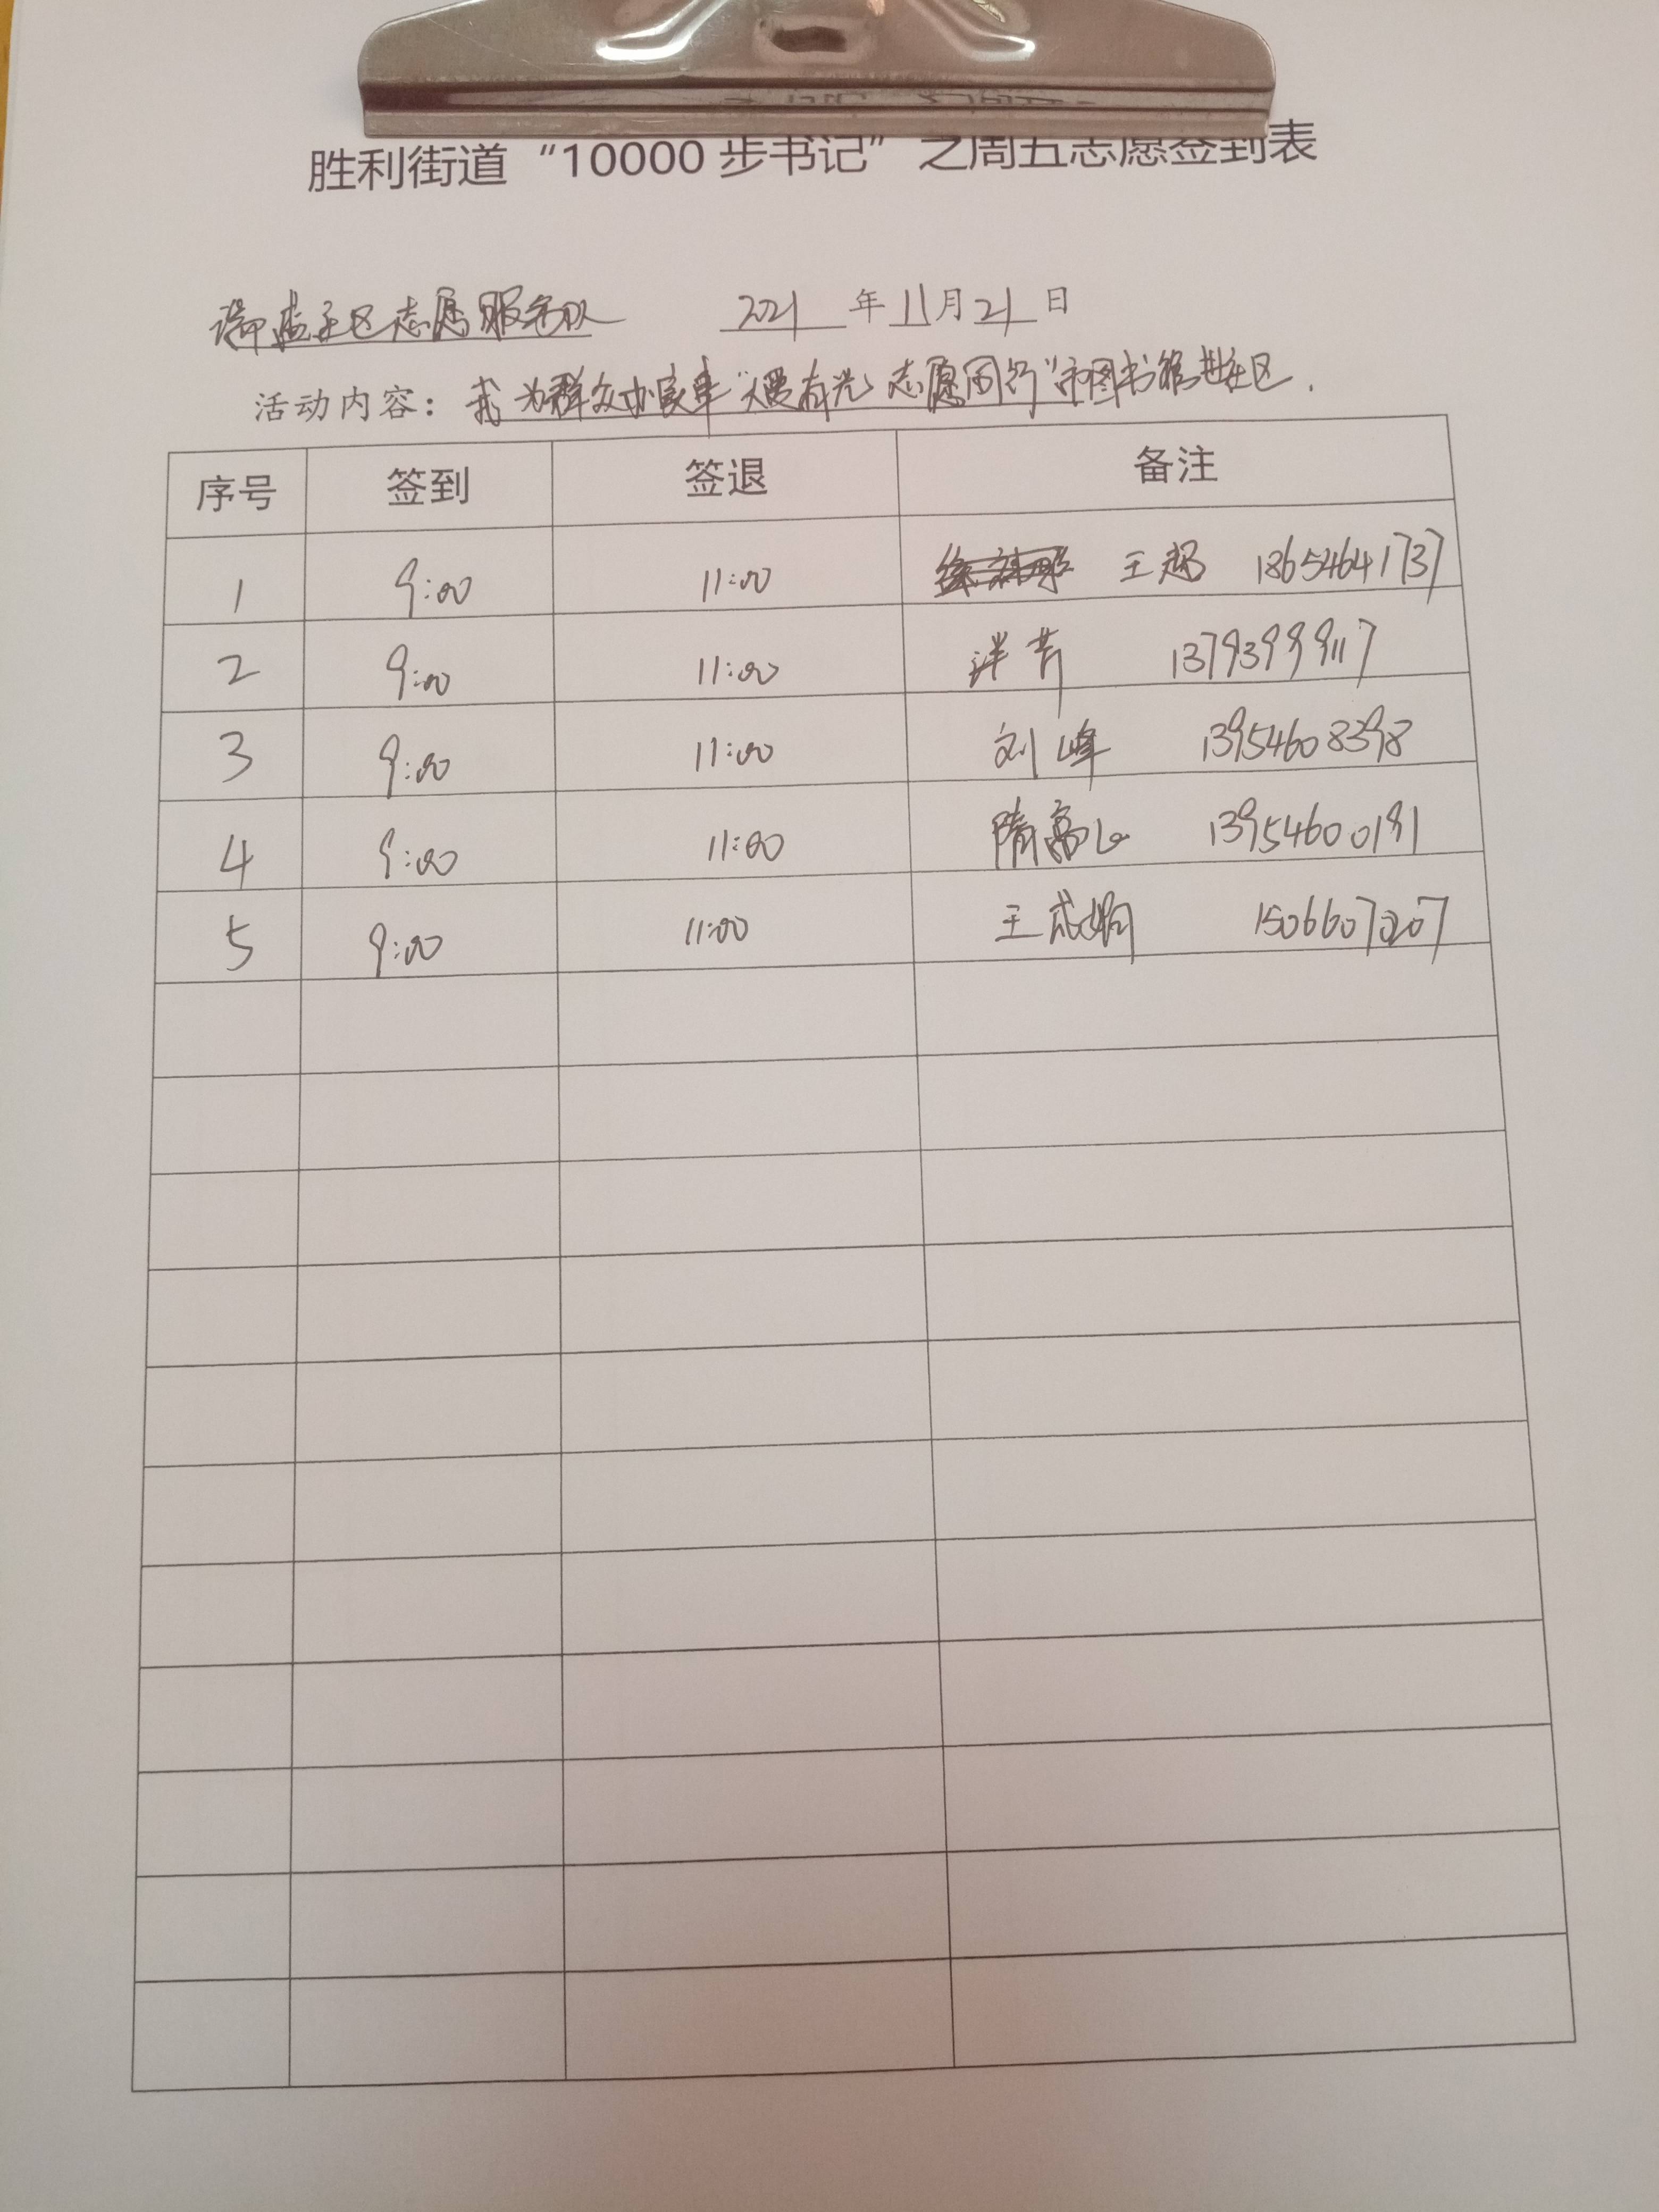 胜利街道“10000步书记”之周五志愿签到表
社区志愿服务队 2021年11月21日
活动内容：我为群众办实事“暖有光 志愿同行”市图书馆进社区.
序号 签到 签退 备注
1 9:00 11:00 王超 18654641737
2 9:00 11:00 13793999117
3 9:00 11:00 刘峰 13954608398
4 9:00 11:00 隋 13954600191
5 9:00 11:00 王 15066070207